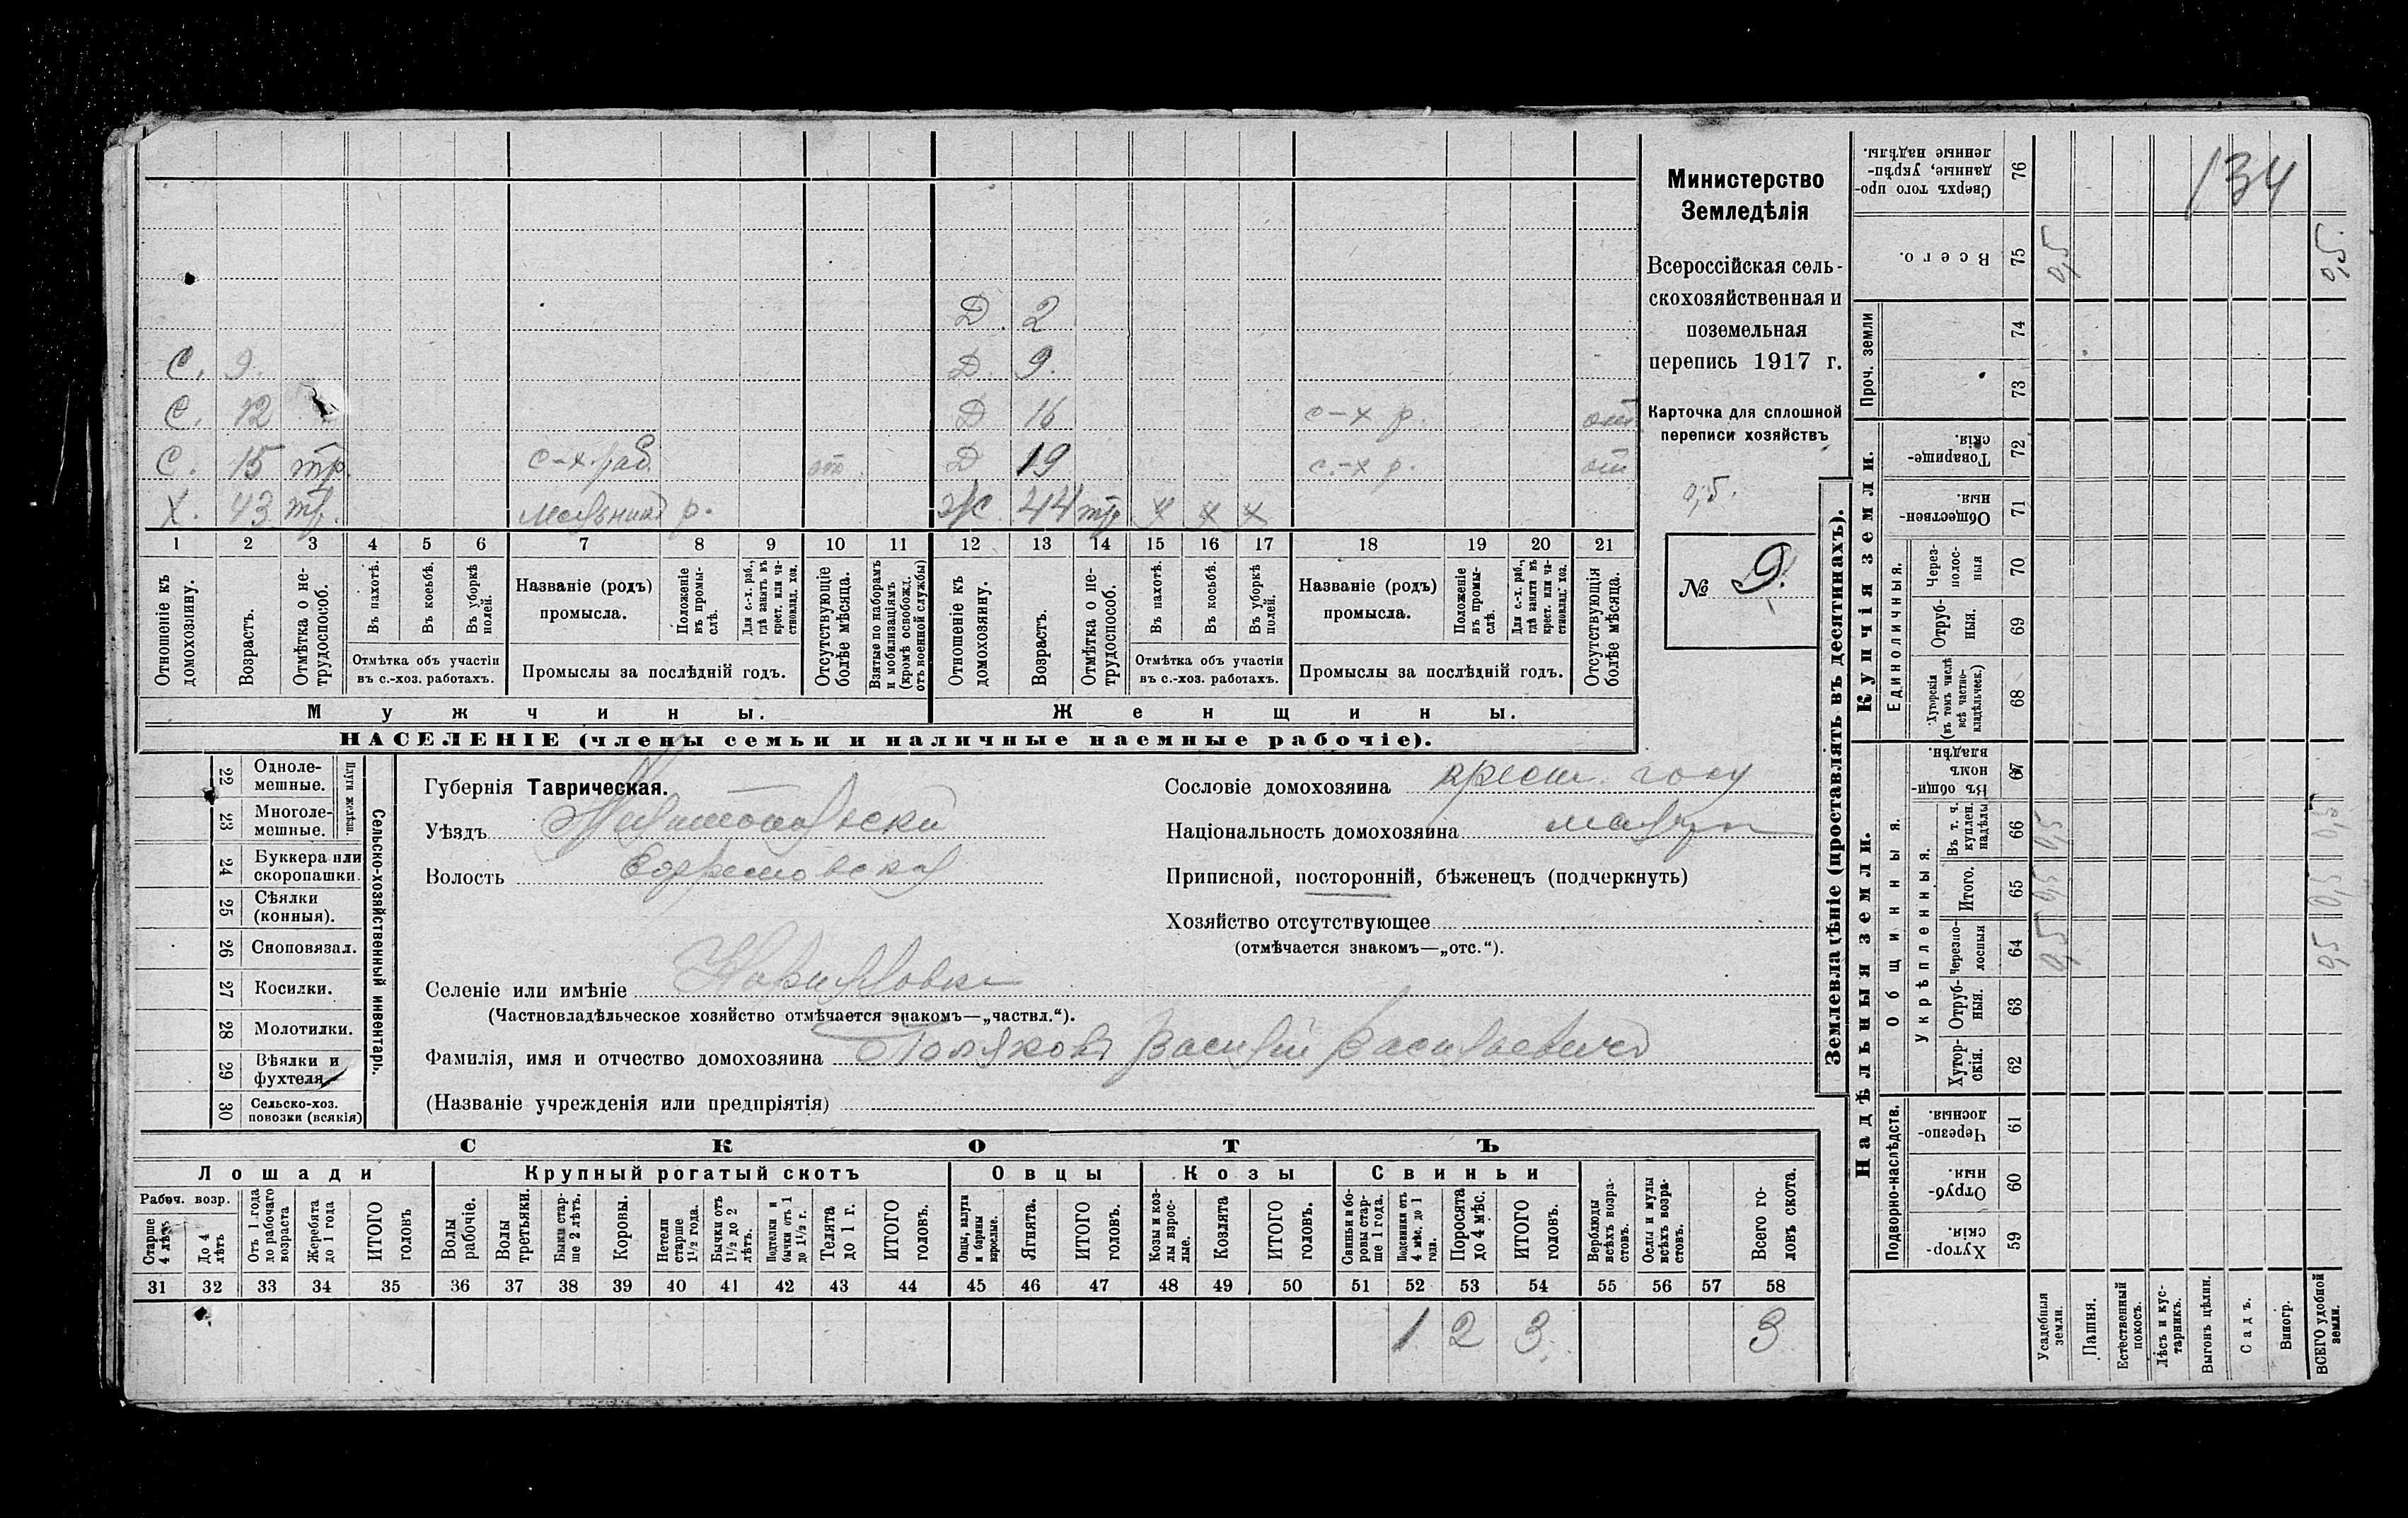 134
Д. 2
С. 9. Д. 9.
С. 12 Д 16 с-х р.
С. 15 тр. с-х. раб. от Д 19 с.-х р. от
Х. 43 тр. р. Ж 44 тр х х х
1 2 3 4 5 6 7 8 9 10 11 12 13 14 15 16 17 18 19 20 21
Отношеніе къ домохозяину.
Возрастъ.
Отмѣтка о нетрудоспособ.
Въ пахотѣ.
Въ косьбѣ.
Въ уборкѣ полей.
Отмѣтка объ участіи
въ с.-хоз. работахъ.
Названіе (родъ)
промысла.
Положеніе въ промыслѣ.
Для с.-х. раб., гдѣ занятъ въ крест. или частновлад. хоз.
Промыслы за послѣдній годъ.
Отсутствующіе болѣе мѣсяца.
Взятые по наборамъ и мобилизаціямъ (кромѣ освобожд. отъ военной службы)
Отношеніе къ домохозяину.
Возрастъ.
Отмѣтка о нетрудоспособ.
Въ пахотѣ.
Въ косьбѣ.
Въ уборкѣ полей.
Отмѣтка объ участіи
въ с.-хоз. работахъ.
Названіе (родъ)
промысла.
Положеніе въ промыслѣ.
Для с.-х. раб., гдѣ занята въ крест. или частновлад. хоз.
Промыслы за послѣдній годъ.
Отсутствующія болѣе мѣсяца.
Мужчины. Женщины.
НАСЕЛЕНІЕ (члены семьи и наличные наемные рабочіе).
Министерство
Земледѣлія
Всероссійская сель-
скохозяйственная и
поземельная
перепись 1917 г.
Карточка для сплошной
переписи хозяйствъ
0,5.
№ 9.
Плуги желѣзн.
22 Одноле-
мешные.
23 Многоле-
мешные.
24 Буккера или
скоропашки.
25 Сѣялки
(конныя).
26 Сноповязал.
27 Косилки.
28 Молотилки.
29 Вѣялки и
фухтеля
30 Сельско-хоз.
повозки (всякія)
Сельско-хозяйственный инвентарь.
Губернія Таврическая.
Уѣздъ
Волость Ефремовская
Селеніе или имѣніе
(Частновладѣльческое хозяйство отмѣчается знакомъ—„частвл.“).
Фамилія, имя и отчество домохозяина Поляковъ Василій Васильевичъ
(Названіе учрежденія или предпріятія)
Сословіе домохозяина крест.
Національность домохозяина малор
Приписной, посторонній, бѣженецъ (подчеркнуть)
Хозяйство отсутствующее
(отмѣчается знакомъ—„отс.“).
СКОТЪ
Лошади Крупный рогатый скотъ Овцы Козы Свиньи
Рабоч. возр.
Старше 4 лѣтъ
До 4 лѣтъ
Отъ 1 года до рабочаго возраста
Жеребята до 1 года
ИТОГО головъ
Волы рабочіе.
Волы третьяки.
Быки старше 2 лѣтъ.
Коровы.
Нетели старше 1½ года.
Бычки отъ 1½ до 2 лѣтъ.
Подтелки и бычки отъ 1 до 1½ г.
Телята до 1 г.
ИТОГО головъ.
Овцы, валухи и бараны взрослые.
Ягнята.
ИТОГО головъ.
Козы и козлы взрослые.
Козлята
ИТОГО головъ.
Свиньи и боровы старше 1 года.
Подсвинки отъ 4 мѣс. до 1 года.
Поросята до 4 мѣс.
ИТОГО головъ.
Верблюды всѣхъ возрастовъ.
Ослы и мулы всѣхъ возрастовъ.
Всего головъ скота.
31 32 33 34 35 36 37 38 39 40 41 42 43 44 45 46 47 48 49 50 51 52 53 54 55 56 57 58
1 2 3. 3
Землевладѣніе (проставлять въ десятинахъ).
Надѣльныя земли. Купчія земли.
Подворно-наслѣдств.
Общинныя.
Укрѣпленныя.
Единоличныя.
Проч. земли
59 Хуторскія
60 Отрубныя
61 Черезполосныя
62 Хуторскія.
63 Отрубныя.
64 Черезполосныя 0,5 0,5
65 Итого. 0,5 0,5
66 Въ т. ч. куплен. надѣлы 0,5 0,5
67 Въ общинномъ владѣн.
68 Хуторскія (въ томъ числѣ всѣ частновладѣльческ.)
69 Отрубныя.
70 Черезполосныя
71 Общественныя.
72 Товарищескія.
73
74
75 Всего. 0,5 0,5.
76 Сверхъ того проданные, укрѣпленные надѣлы.
Усадебныя земли.
Пашня.
Естественный покосъ.
Лѣсъ и кустарникъ.
Выгонъ цѣлин.
Садъ.
Виногр.
ВСЕГО удобной земли.